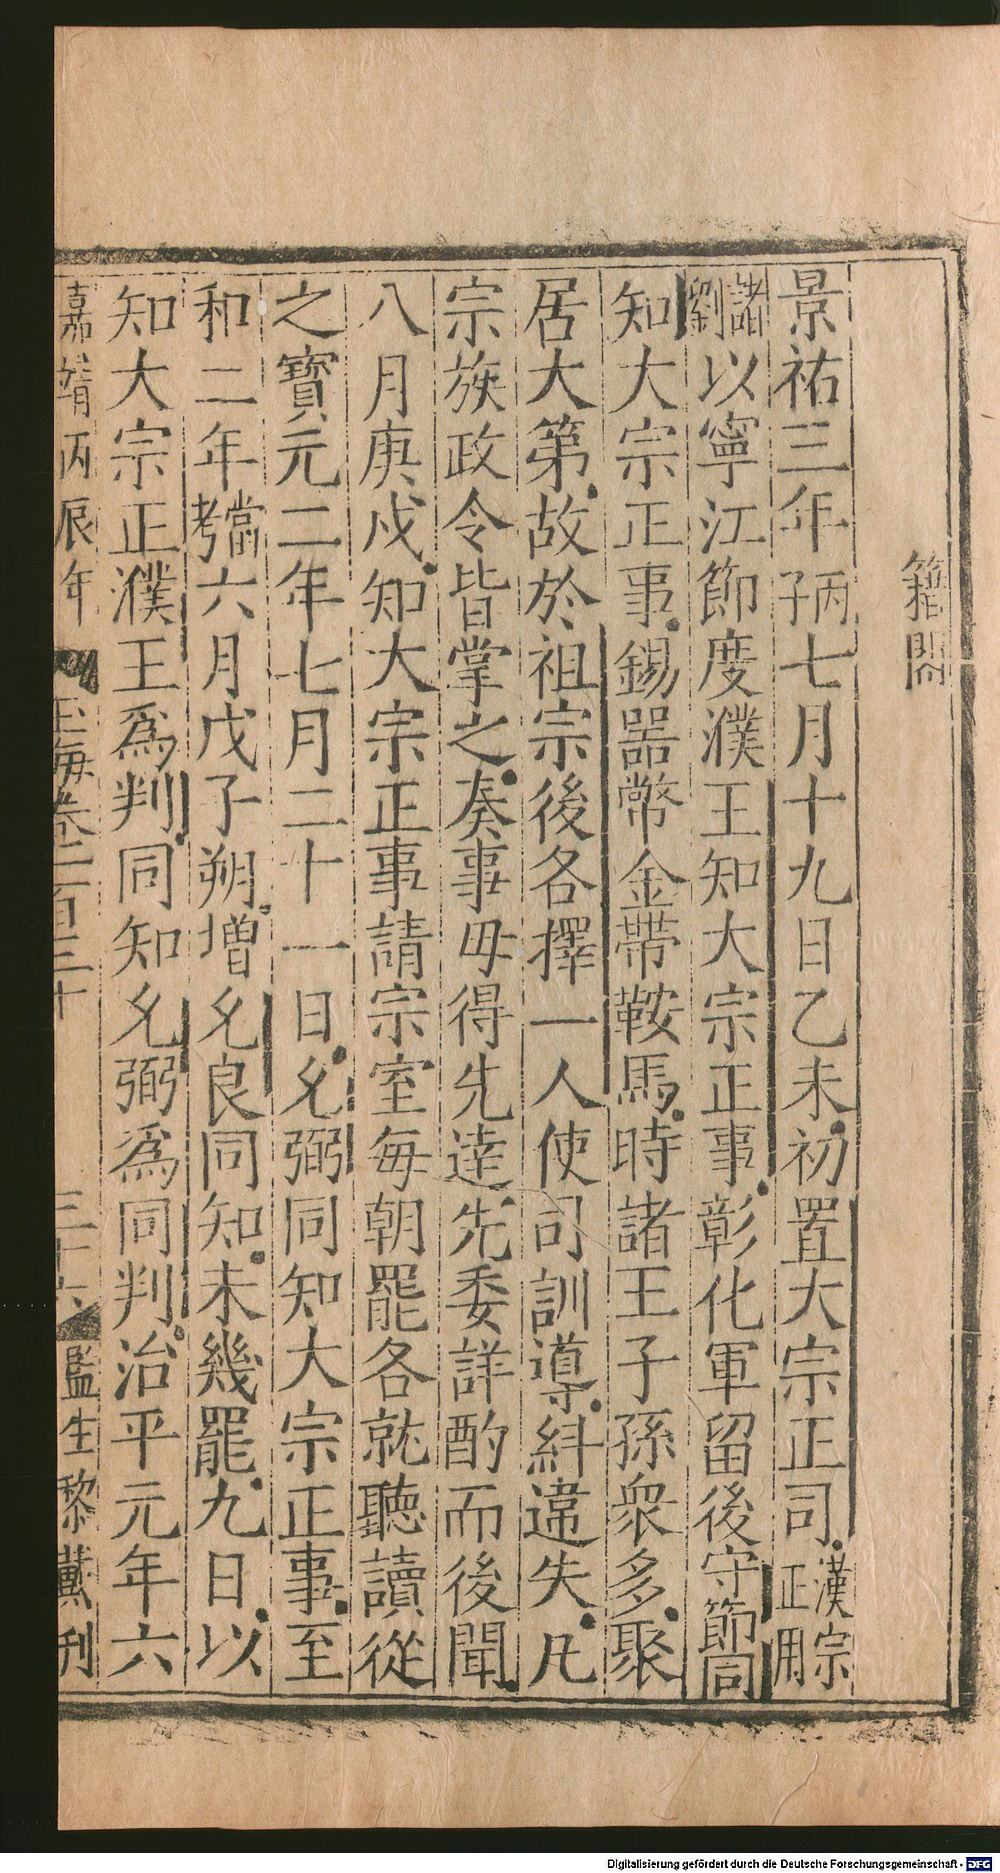 籍閣
景祐三年丙子七月十九日乙未初置大宗正司漢宗正用
諸劉以寧江節度濮王知大宗正事彰化軍留後守節同
知大宗正事錫器幣金帶鞍馬時諸王子孫衆多聚
居大第故於祖宗後各擇一人使司訓導糾違失凡
宗族政令皆掌之奏事毋得先達先委詳酌而後聞
八月庚戌知大宗正事請宗室每朝罷各就聽讀從
之寶元二年七月二十一日允弼同知大宗正事至
和二年當考六月戊子朔增允良同知未幾罷九日以
知大宗正濮王爲判同知允弼爲同判治平元年六
嘉靖丙辰年 玉海卷一百三十 三十六 監生黎戴刊
Digitalisierung gefördert durch die Deutsche Forschungsgemeinschaft - DFG